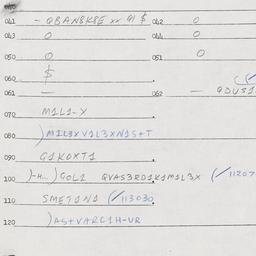 041 - QBANSKSE xx 91 $ 042 0
043 0 044 0
050 0 051 0
060 $
061 - 062 - QDUS1
070 M1L1-X
080 )M1L3XV1L3XN1S+T
090 G1KOXT1
100 )-H...)GOL1 QVAS3RD1K1M1L3X (/11207
110 SMET1N1 (/113030
120 )AS+VARG1H-UR